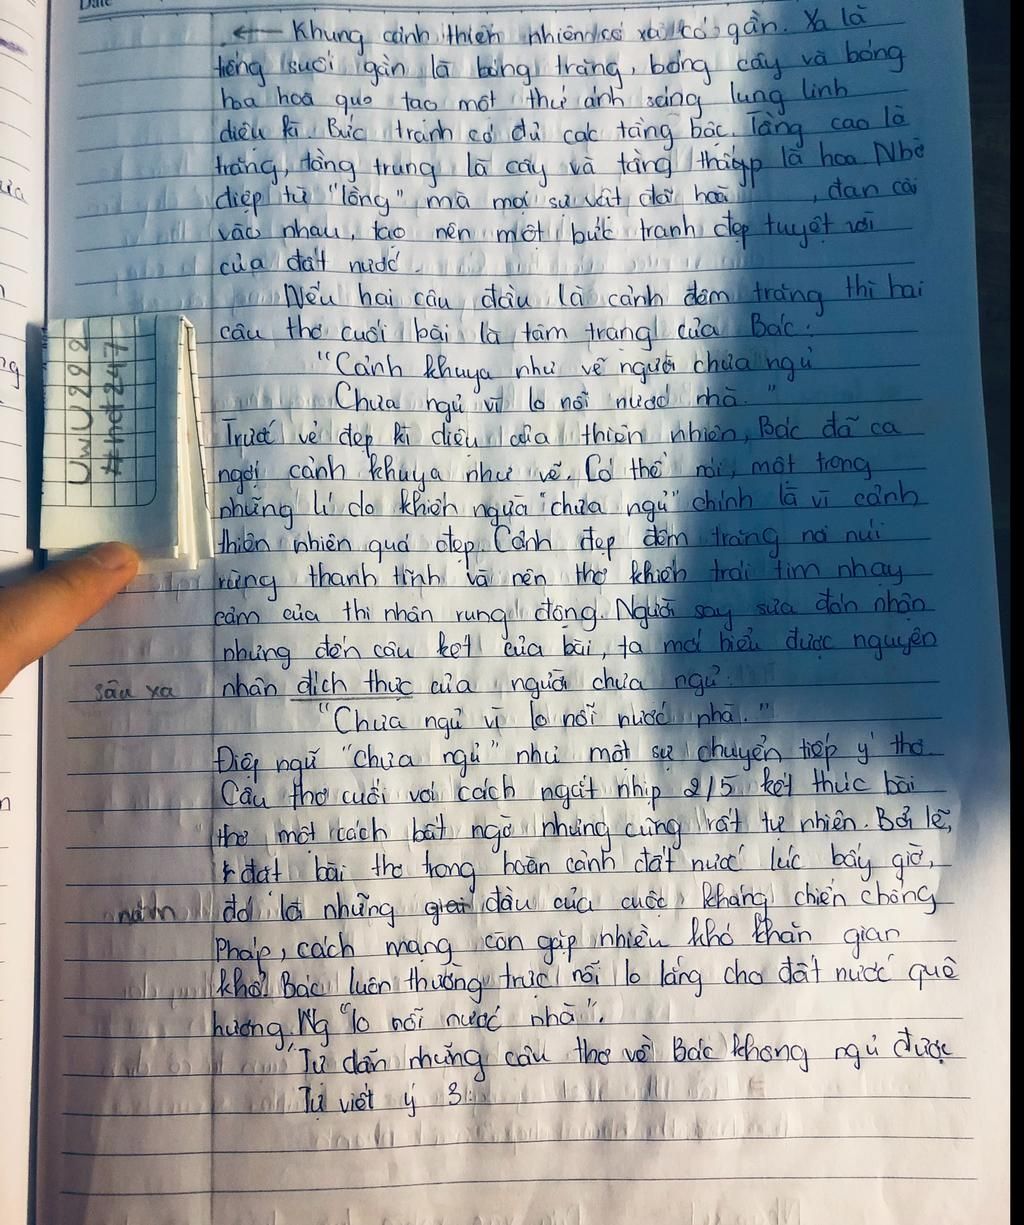 ← Khung cảnh thiên nhiên có xa có gần. Xa là
tiếng suối gần là bóng trăng, bóng cây và bóng
hoa hoà quo tạo một thứ ánh sáng lung linh
diệu kì. Bức tranh có đủ các tầng bậc. Tầng cao là
trăng, tầng trung là cây và tầng thấp là hoa Nhờ
điệp từ "lồng" mà mọi sự vật đã hoà , đan cài
vào nhau, tạo nên một bức tranh đẹp tuyệt vời
của đất nước.
Nếu hai câu đầu là cảnh đêm trăng thì hai
câu thơ cuối bài là tâm trạng của Bác:
"Cảnh khuya như vẽ người chưa ngủ
Chưa ngủ vì lo nỗi nước nhà."
Trước vẻ đẹp kì diệu của thiên nhiên, Bác đã ca
ngợi cảnh khuya như vẽ. Có thể nói, một trong
những lí do khiến người "chưa ngủ" chính là vì cảnh
thiên nhiên quá đẹp. Cảnh đẹp đêm trăng nơi núi
rừng thanh tĩnh và nên thơ khiến trái tim nhạy
cảm của thi nhân rung động. Người say sưa đón nhận
nhưng đến câu kết của bài, ta mới hiểu được nguyên
sâu xa nhân đích thực của người chưa ngủ:
"Chưa ngủ vì lo nỗi nước nhà."
Điệp ngữ "Chưa ngủ" như một sự chuyển tiếp ý thơ
Câu thơ cuối với cách ngắt nhịp 2/5 kết thúc bài
thơ một cách bất ngờ nhưng cũng rất tự nhiên. Bởi lẽ,
đặt bài thơ trong hoàn cảnh đất nước lúc bấy giờ,
năm đó là những giai đầu của cuộc kháng chiến chống
Pháp, cách mạng còn gặp nhiều khó khăn gian
khổ. Bác luôn thường trực nỗi lo lắng cho đất nước quê
hương, Ng "lo nỗi nước nhà".
Tự dẫn những câu thơ về Bác không ngủ được
Tự viết ý 3
UwU222
#hdt247